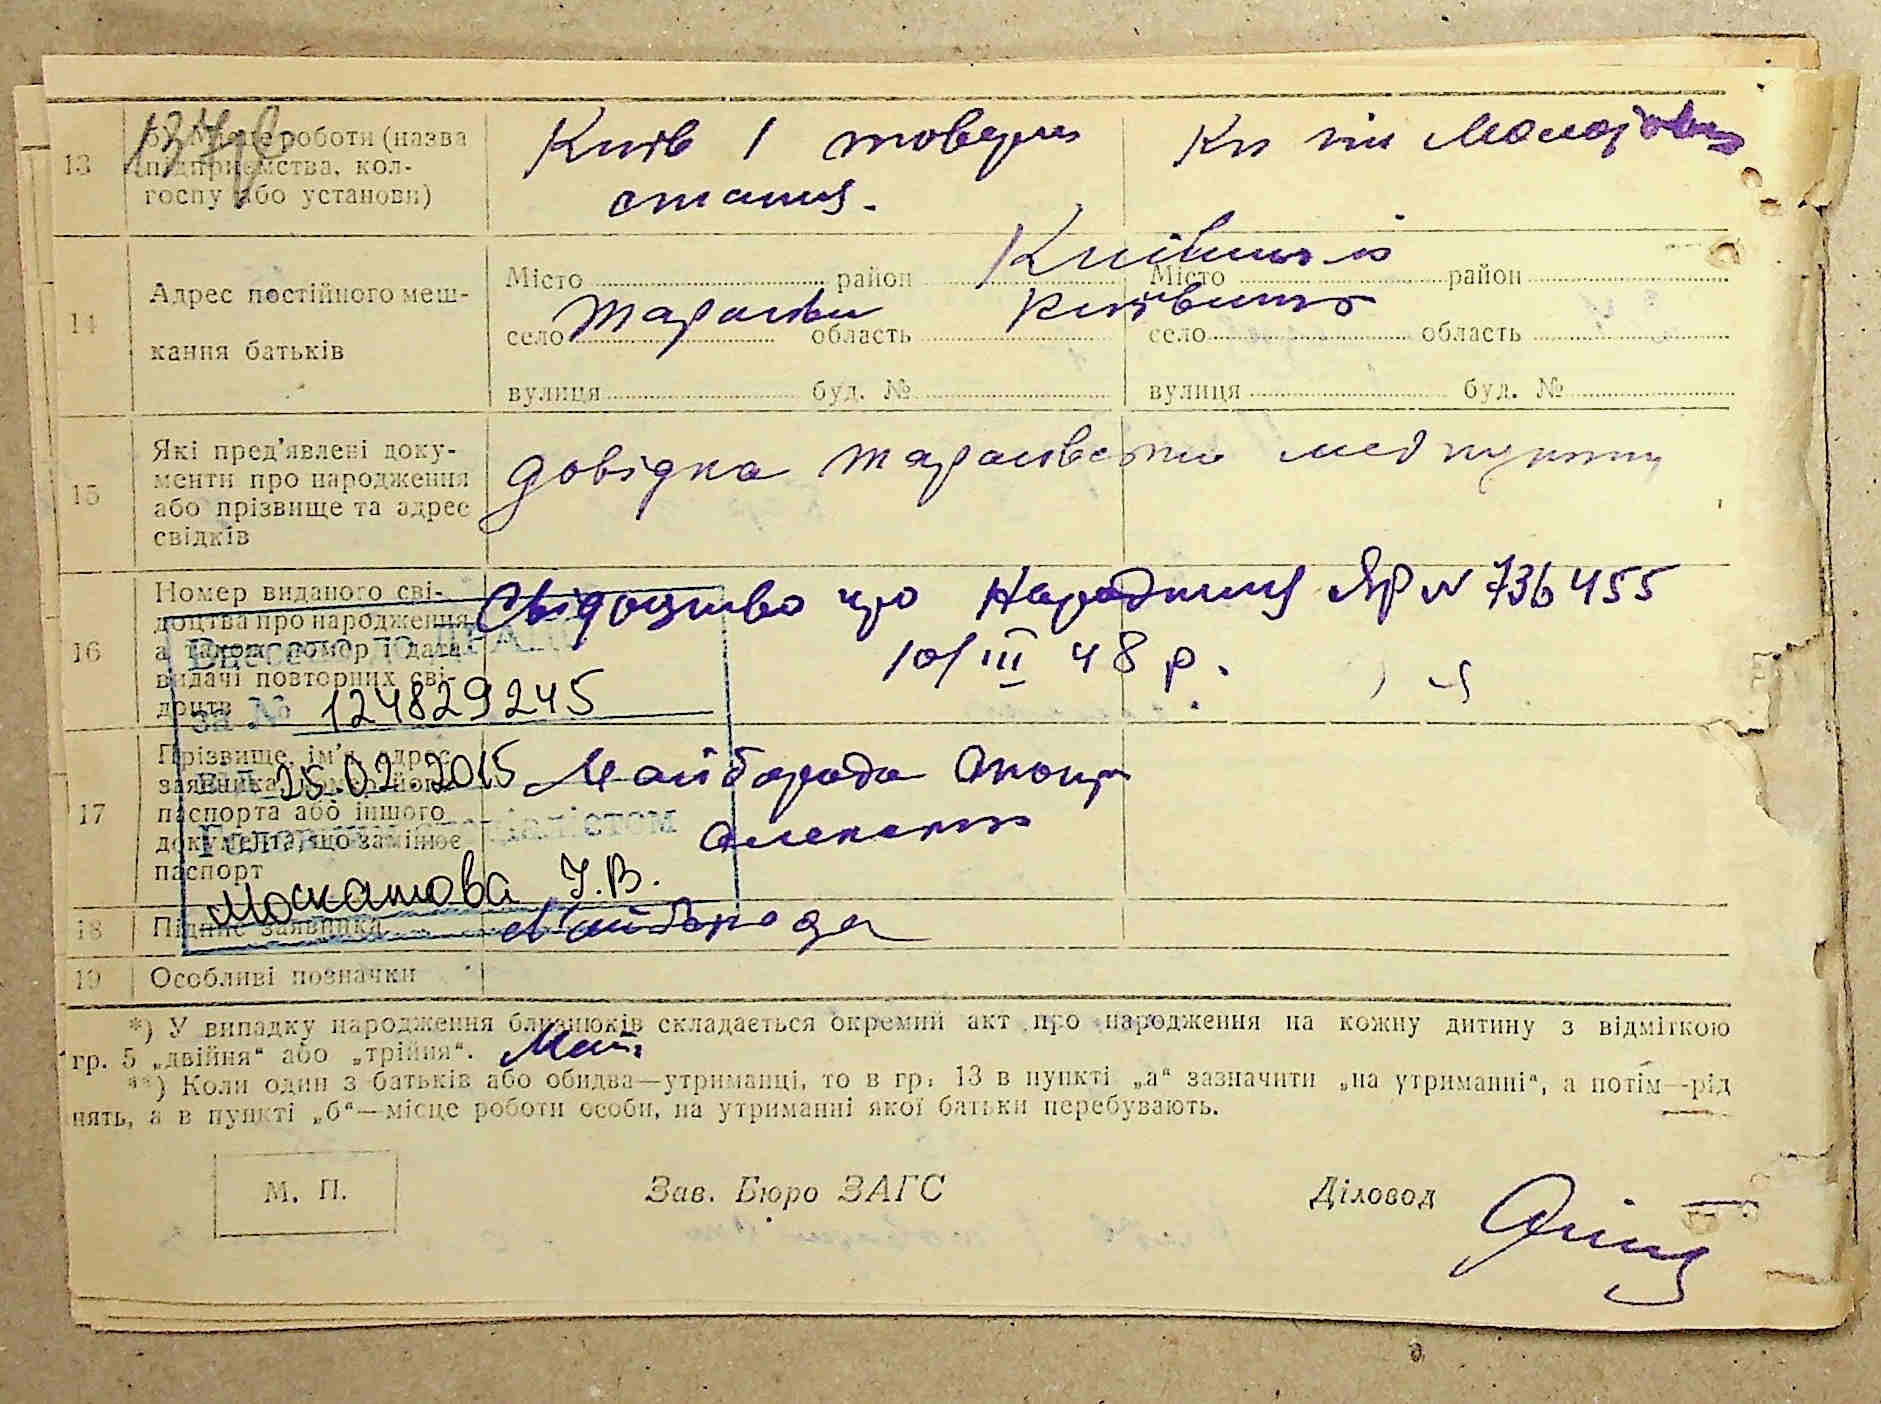 13 б) Місце роботи (назва підприємства, колгоспу або установи)
Київ 1 товарна
станція.
Кп ім Молотова
14 Адрес постійного мешкання батьків
Місто район Місто район
Київської
село Тарасівка область Київська село область
вулиця буд. № вулиця буд. №
15 Які пред'явлені документи про народження або прізвище та адрес свідків
довідка Тарасівського медпункту
16 Номер виданого свідоцтва про народження а також номер і дата видачі повторних свідоцтв
Свідоцтво про Народження ЯР N 736455
10/III 48 р.
Внесено до ДРАЦС
за № 124829245
від 25.02.2015
Головним спеціалістом
Москатова І.В.
17 Прізвище, ім'я, адрес заявника, номер його паспорта або іншого документа, що замінює паспорт
Майборода
18 Підпис заявника
Майборода
19 Особливі позначки
*) У випадку народження близнюків складається окремий акт про народження на кожну дитину з відміткою
гр. 5 „двійня“ або „трійня“.
**) Коли один з батьків або обидва—утриманці, то в гр. 13 в пункті „а“ зазначити „на утриманні“, а потім—рід
нять, а в пункті „б“—місце роботи особи, на утриманні якої батьки перебувають.
М. П.
Зав. Бюро ЗАГС
Діловод